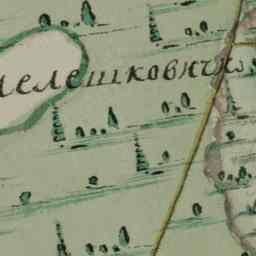 мелешковичи